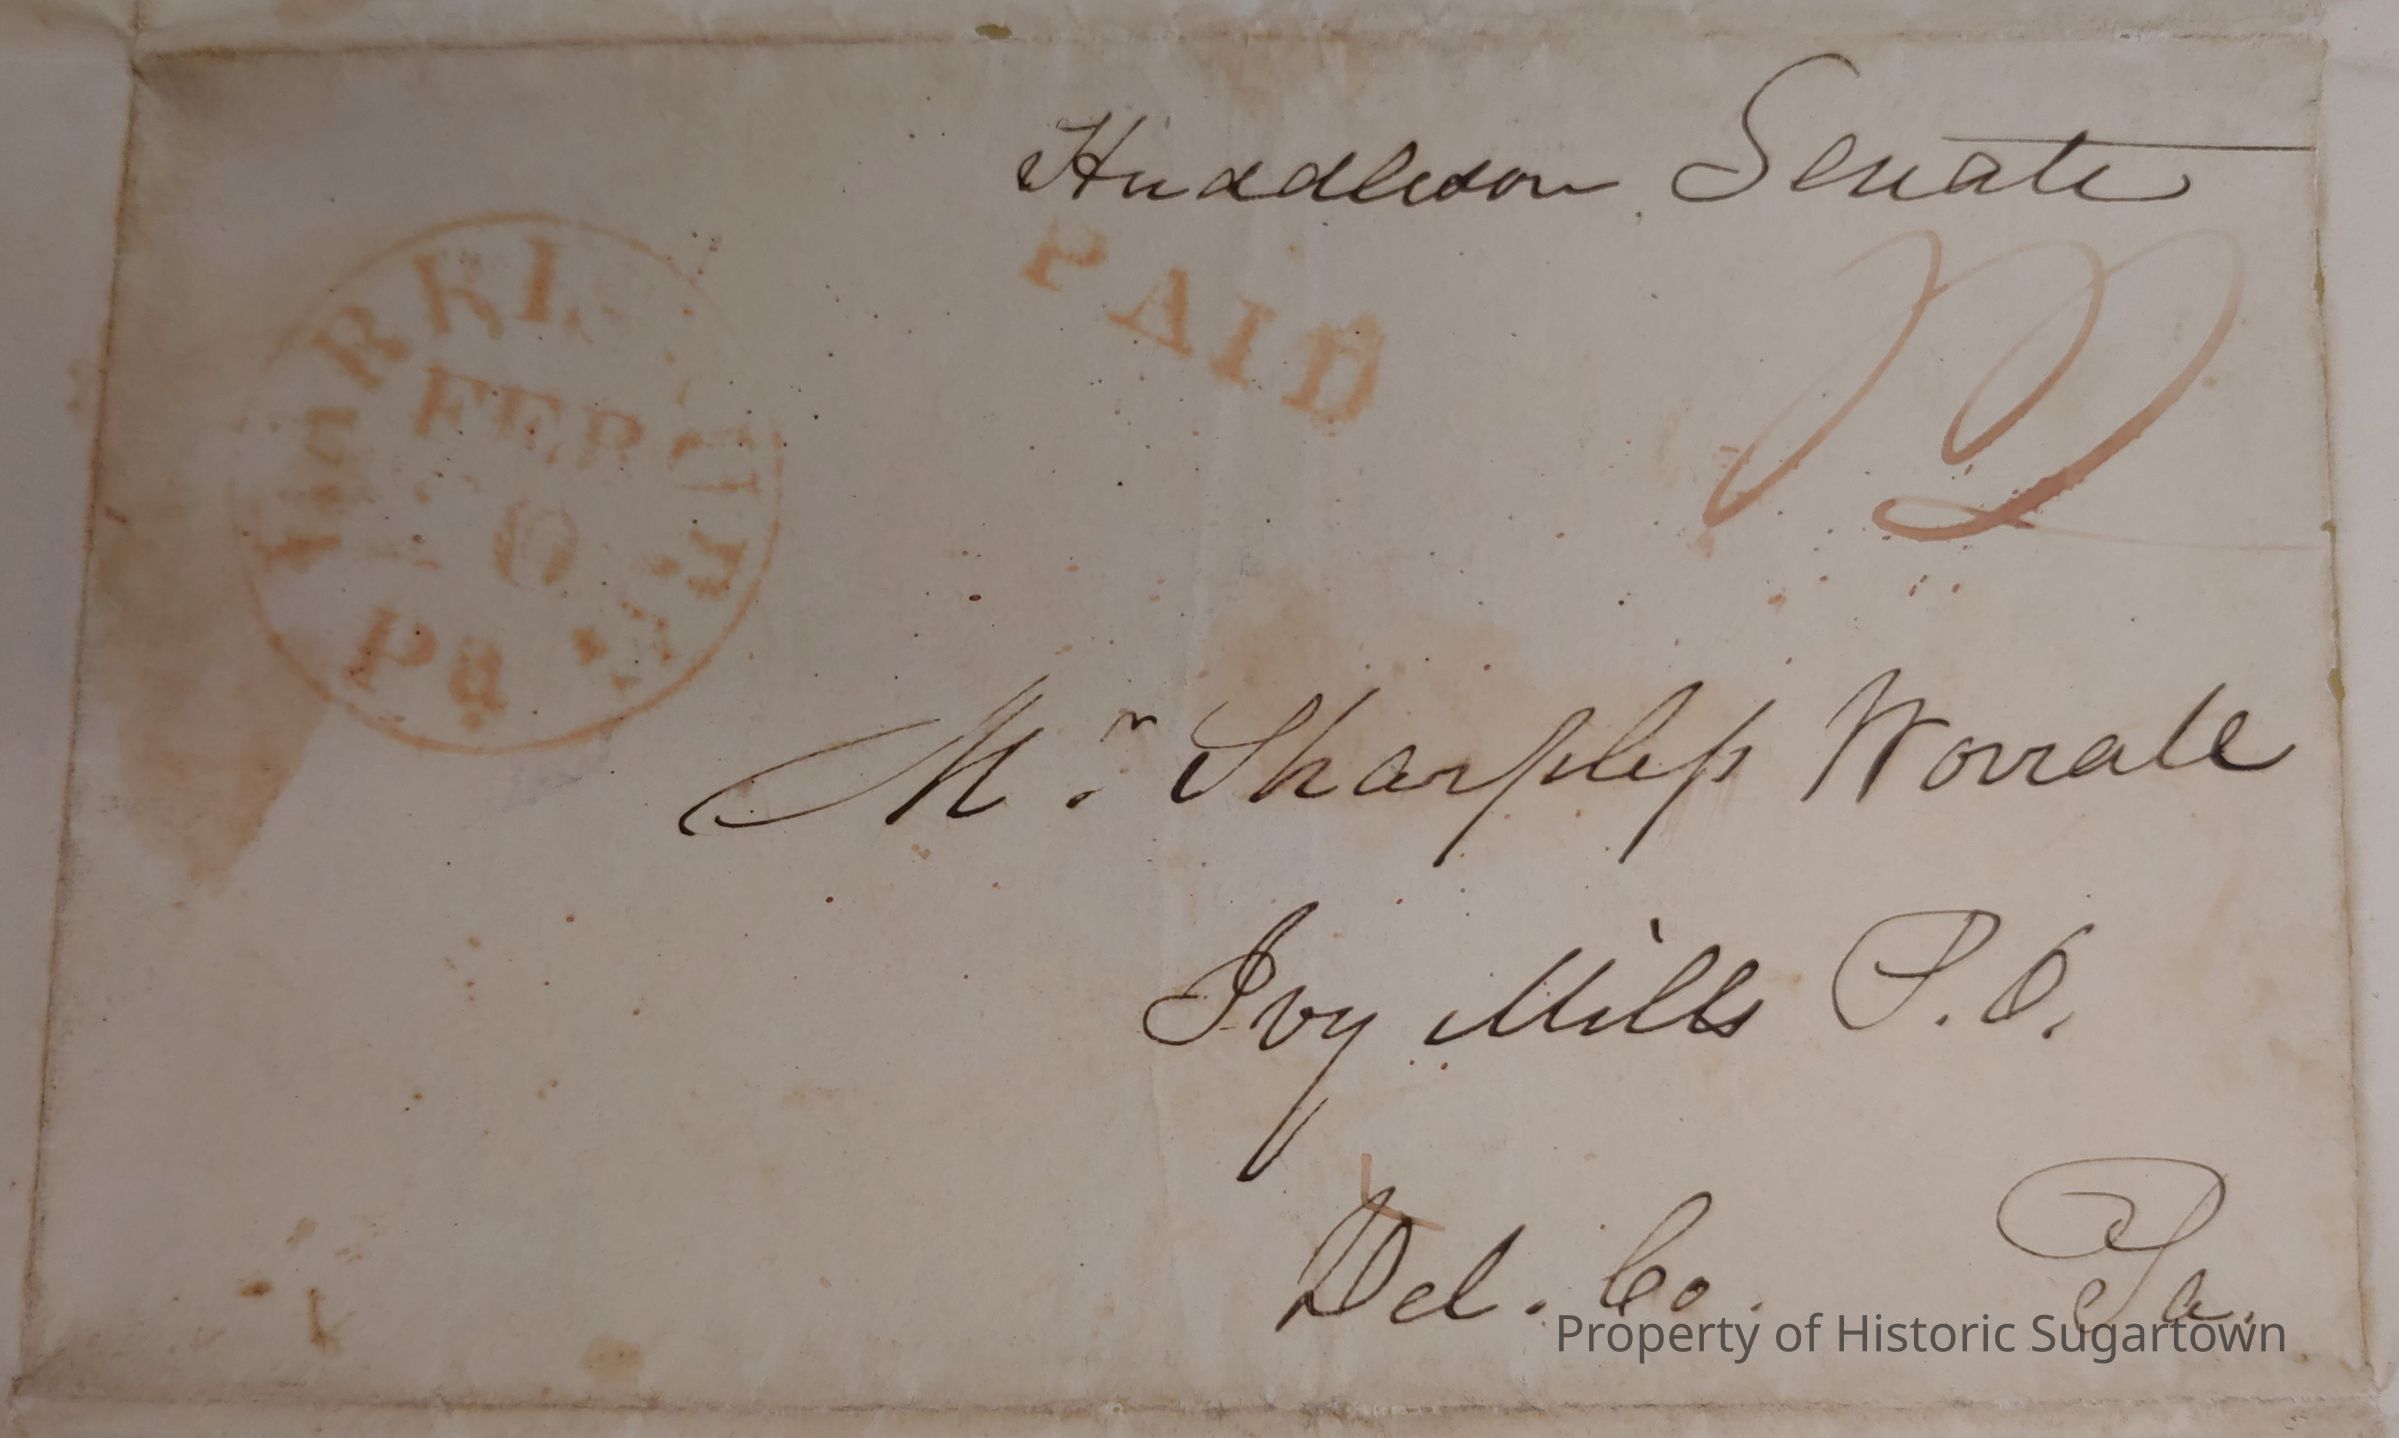 Huddleson Senate
PAID
12
HARRISBURG Pa
FEB
Mr. Sharpless Worrall
Ivy Mills P.O.
Del. Co. Pa.
Property of Historic Sugartown